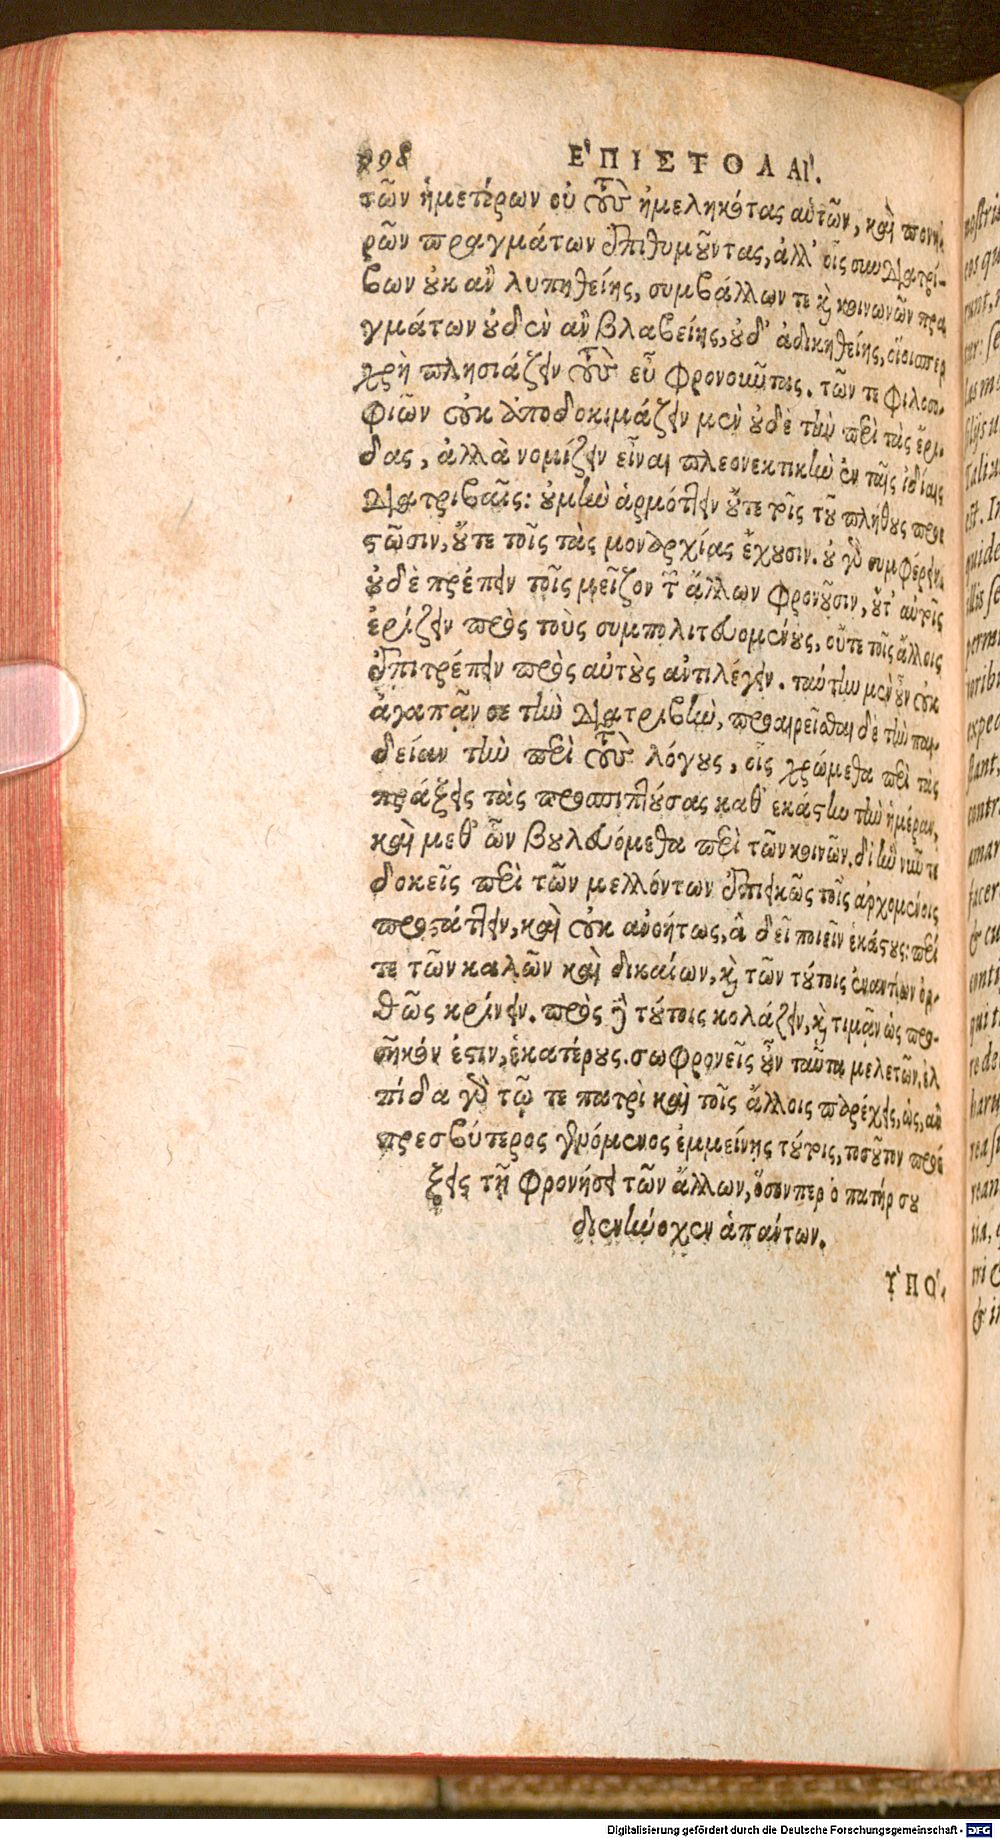 998 ἘΠΙΣΤΟΛΑΊ.
τῶν ἡμετέρων οὐ τοὺς ἠμεληκότας αὑτῶν, καὶ πονη-
ρῶν πραγμάτων ἐπιθυμοῦντας, ἀλλ᾽ οἷς συνδιατρί-
βων οὐκ ἂν λυπηθείης, συμβάλλων τε καὶ κοινωνῶν πρα
γμάτων οὐδὲν ἂν βλαβείης, οὐδ᾽ ἀδικηθείης, οἵοισπερ
χρὴ πλησιάζειν τοὺς εὖ φρονοῦντας. τῶν τε φιλοσο-
φιῶν οὐκ ἀποδοκιμάζειν μὲν οὐδὲ τὴν περὶ τὰς ἔρι-
δας, ἀλλὰ νομίζειν εἶναι πλεονεκτικὴν ἐν ταῖς ἰδίαις
διατριβαῖς: οὐ μὴν ἁρμόττειν οὔτε τοῖς τοῦ πλήθους προε
στῶσιν, οὔτε τοῖς τὰς μοναρχίας ἔχουσιν. οὐ γὰρ συμφέρειν,
οὐδὲ πρέπειν τοῖς μεῖζον τῶν ἄλλων φρονοῦσιν, οὔτ᾽ αὐτοῖς
ἐρίζειν πρὸς τοὺς συμπολιτευομένους, οὔτε τοῖς ἄλλοις
ἐπιτρέπειν πρὸς αὐτοὺς ἀντιλέγειν. ταύτην μὲν οὖν οὐκ
ἀγαπᾶν σε τὴν διατριβὴν, προαιρεῖσθαι δὲ τὴν παι-
δείαν τὴν περὶ τοὺς λόγους, οἷς χρώμεθα περὶ τὰς
πράξεις τὰς προσπιπτούσας καθ᾽ ἑκάστην τὴν ἡμέραν,
καὶ μεθ᾽ ὧν βουλευόμεθα περὶ τῶν κοινῶν. δι᾽ ἣν νῦν τε
δοκεῖς περὶ τῶν μελλόντων ἐπιεικῶς τοῖς ἀρχομένοις
προστάττειν, καὶ οὐκ ἀνοήτως, ἃ δεῖ ποιεῖν ἑκάστους: περί
τε τῶν καλῶν καὶ δικαίων, καὶ τῶν τούτοις ἐναντίων ὀρ-
θῶς κρίνειν. πρὸς δὲ τούτοις κολάζειν, καὶ τιμᾶν ὡς προ-
σῆκόν ἐστιν, ἑκατέρους. σωφρονεῖς οὖν ταῦτα μελετῶν. ἐλ
πίδα γὰρ τῷ τε πατρὶ καὶ τοῖς ἄλλοις παρέχεις, ὡς, ἂν
πρεσβύτερος γενόμενος ἐμμείνῃς τούτοις, τοσοῦτον προέ
ξεις τῇ φρονήσει τῶν ἄλλων, ὅσον περ ὁ πατήρ σου
διενήνοχεν ἁπάντων.
ὙΠΌ-
Digitalisierung gefördert durch die Deutsche Forschungsgemeinschaft - DFG